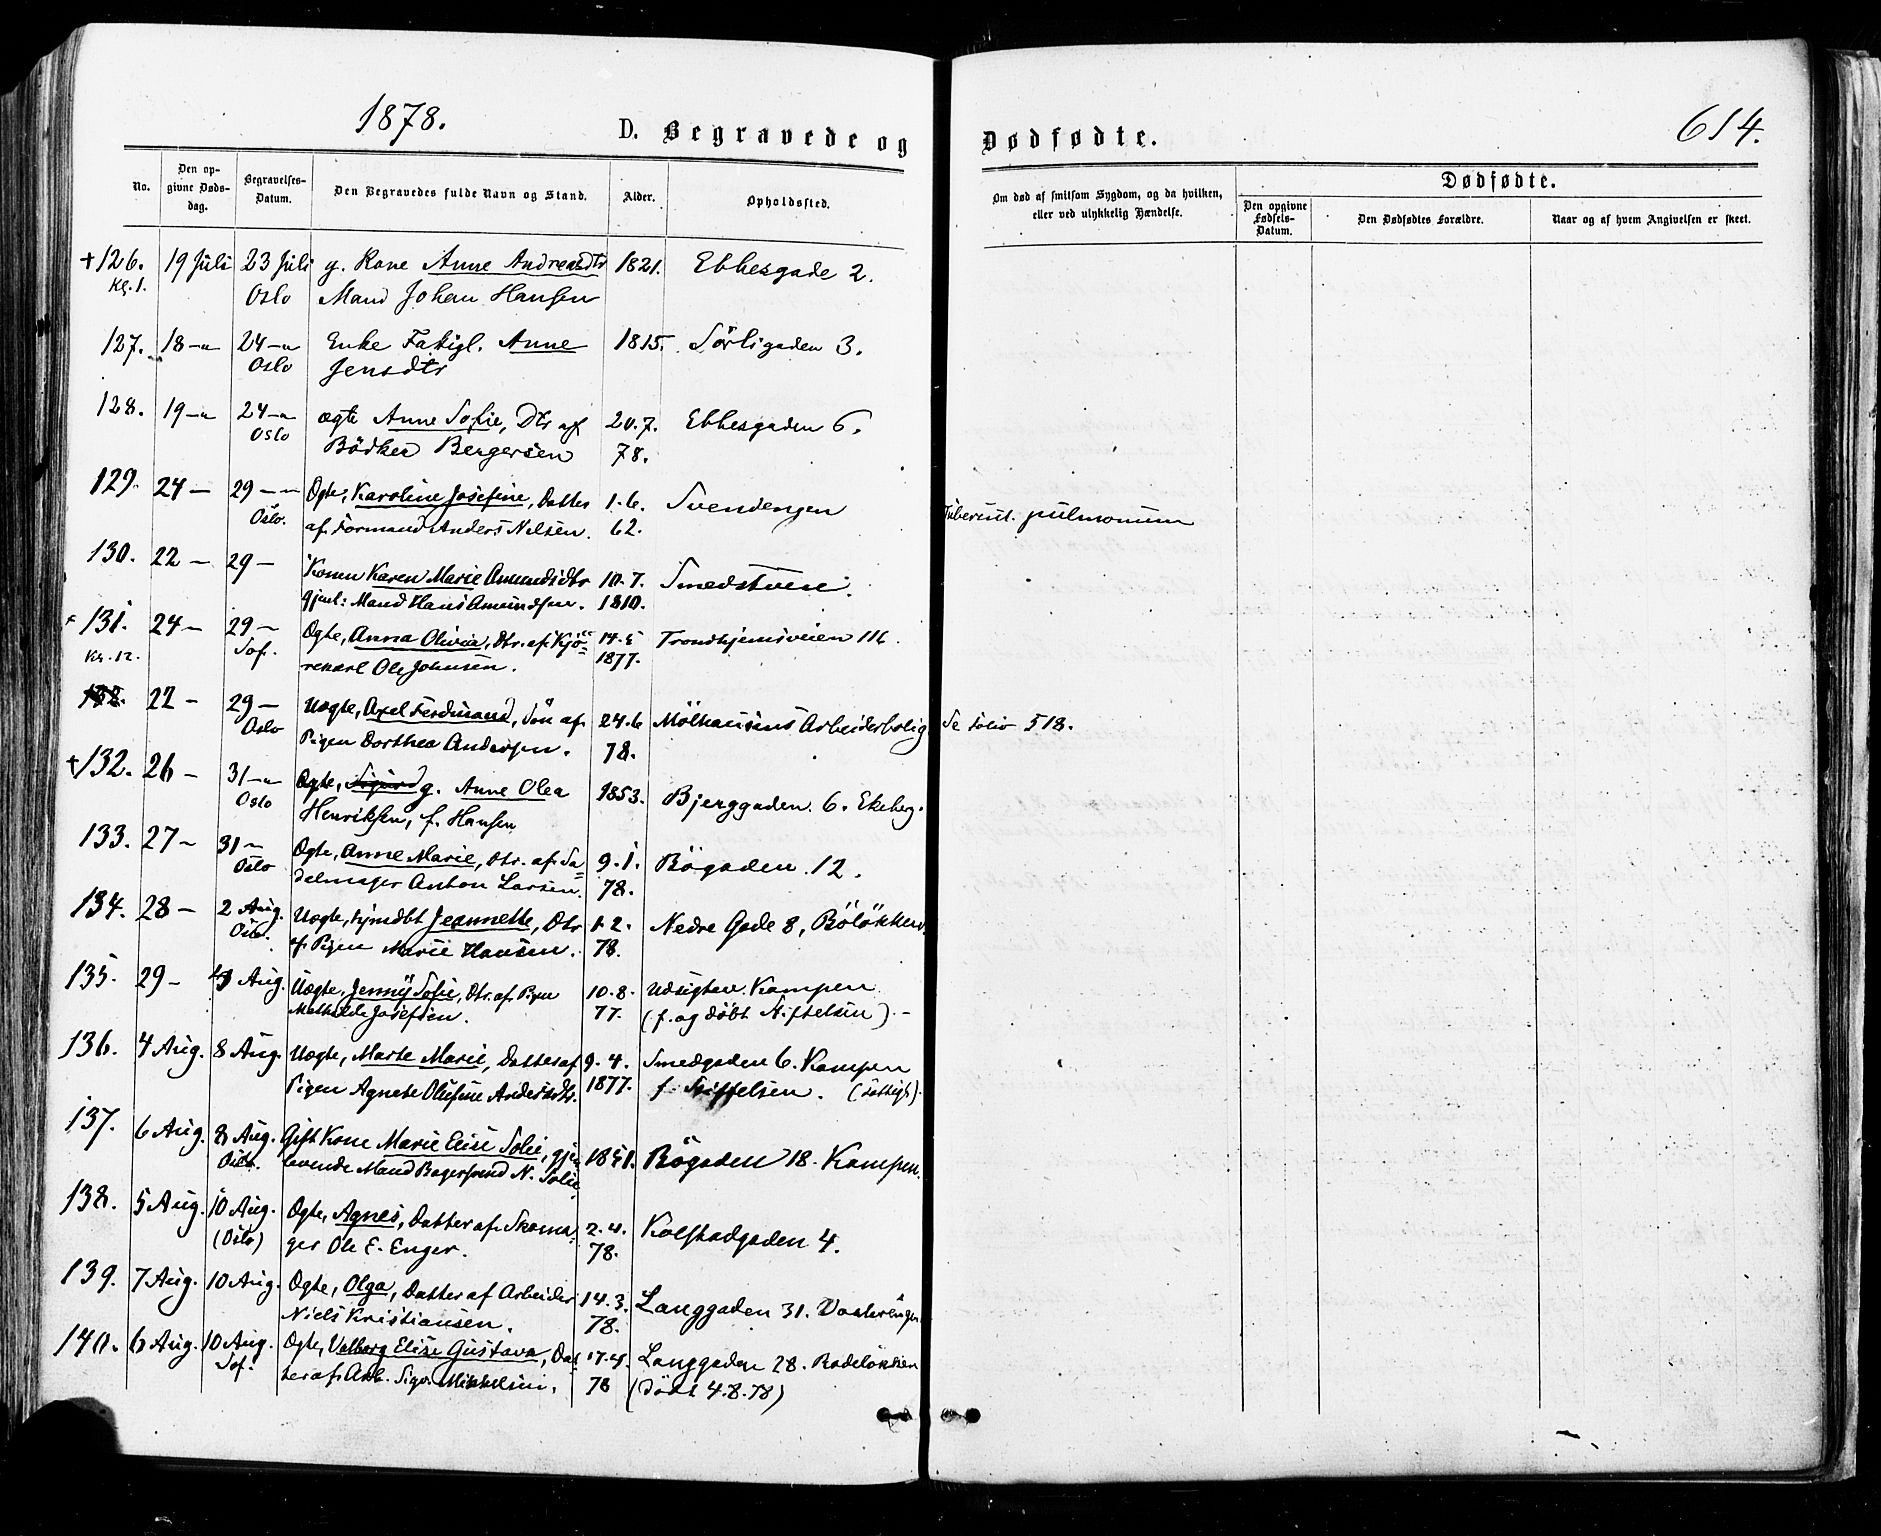 1878.
D. Begravede og
Dødfødte.
614.
No.
Den op-
givne Døds-
dag.
Begravelses-
Datum.
Den Begravedes fulde Navn og Stand.
Alder.
Opholdssted.
Om død af smitsom Sygdom, og da hvilken,
eller ved ulykkelig Hændelse.
Dødfødte.
Den opgivne
Fødsels-
Datum.
Den Dødfødtes Forældre.
Naar og af hvem Angivelsen er skeet.
+126. 19 Juli 23 Juli g. Kone Anne Andreasdtr 1821. Ebbesgade 2.
Kl. 1. Oslo Mand Johan Hansen
127. 18-" 24-" Enke Fatigl. Anne 1815. Sörligaden 3.
Oslo Jensdtr
128. 19-" 24-" ægte Anne Sofie, Dtr af 20.7. Ebbesgaden 6.
Oslo Bödker Bergersen 78.
129. 24- 29-- Ægte, Karoline Josefine, Datter 1.6. Svendengen
Oslo. af Formand Anders Nilsen. 62. Tubercul. pulmonum
130. 22- 29- Konen Karen Marie Amundsdtr 10.7. Smedstuen.
gjenl: Mand Hans Amundsen. 1810.
131. 24- 29- Ægte, Anna Olivia, Dtr. af Kjö- 14.5 Trondhjemsveien 116.
Kl. 12. Sof. rekarl Ole Johnsen. 1877.
132. 22- 29- Uægte, Axel Ferdinand, Sön af 24.6 Mölhausens Arbeiderbolig Se Folio 518.
Oslo Pigen Dorthea Andersen. 78.
+132. 26- 31-" Ægte, Sigurd g. Anne Olea 1853. Bjerggaden 6. Ekeberg.
Oslo Henriksen, f. Hansen
133. 27- 31- Ægte, Anne Marie, Dtr. af Sa- 9.1. Bögaden 12.
Oslo delmager Anton Larsen. 78.
134. 28- 2 Aug. Uægte, hjmdbt Jeannette, Dtr 1.2. Nedre Gade 8, Bölökken.
Oslo. af Pigen Marie Hansen. 78.
135. 29- 3 Aug. Uægte, Jenny Sofie, Dtr. af Pigen 10.8. Udsigten Kampen
Mathilde Josefsen. 77. (f. og döbt Stiftelsen).-
136. 4 Aug. 8 Aug. Uægte, Marte Marie, Datter af 9.4. Smedgaden 6. Kampen
Pigen Agnete Olufine Andersdtr. 1877. f. Stiftelsen. (Fattigl.).
137. 6 Aug. 8 Aug. Gift Kone Marie Elise Solie, gjen- 1851. Bögaden 18. Kampen.
Oslo. levende Mand Bagersvend N. Solie
138. 5 Aug. 10 Aug. Ægte, Agnes, Datter af Skoma- 2.4. Kolstadgaden 4.
(Oslo) ger Ole E. Enger. 78.
139. 7 Aug. 10 Aug. Ægte, Olga, Datter af Arbeider 14.3. Langgaden 31. Vaalerengen
Niels Kristiansen. 78.
140. 6 Aug. 10 Aug. Ægte, Valborg Elise Gustava, Dat- 17.4. Langgaden 28. Rodelökken
Sof. ter af Arb. Sigv. Mikkelsen. 78 (Döbt 4.8.78)